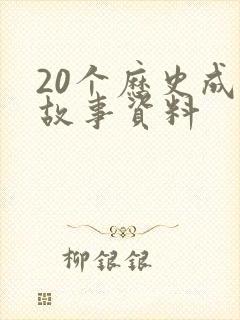 20个历史成
故事资料
柳银银